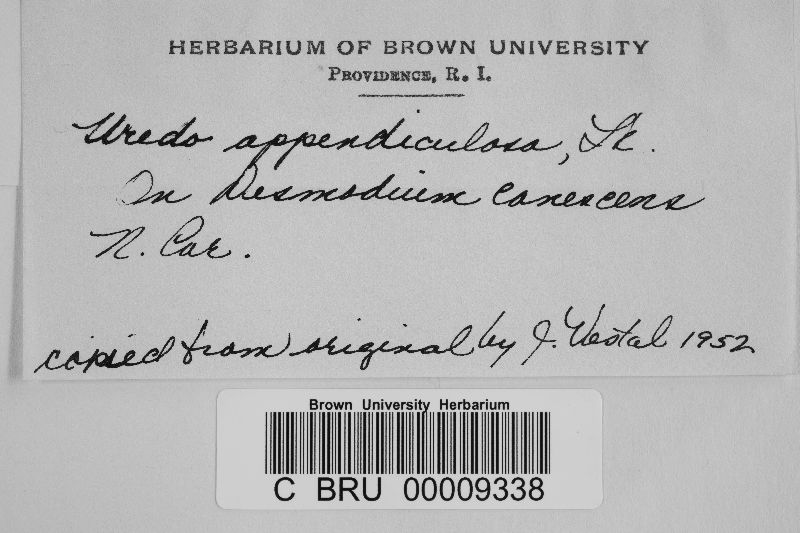 HERBARIUM OF BROWN UNIVERSITY
PROVIDENCE, R. I.
Uredo appendiculosa,
On Desmodium canescens
N. Car.
copied from original by J. Vestal 1952
Brown University Herbarium
C BRU 00009338